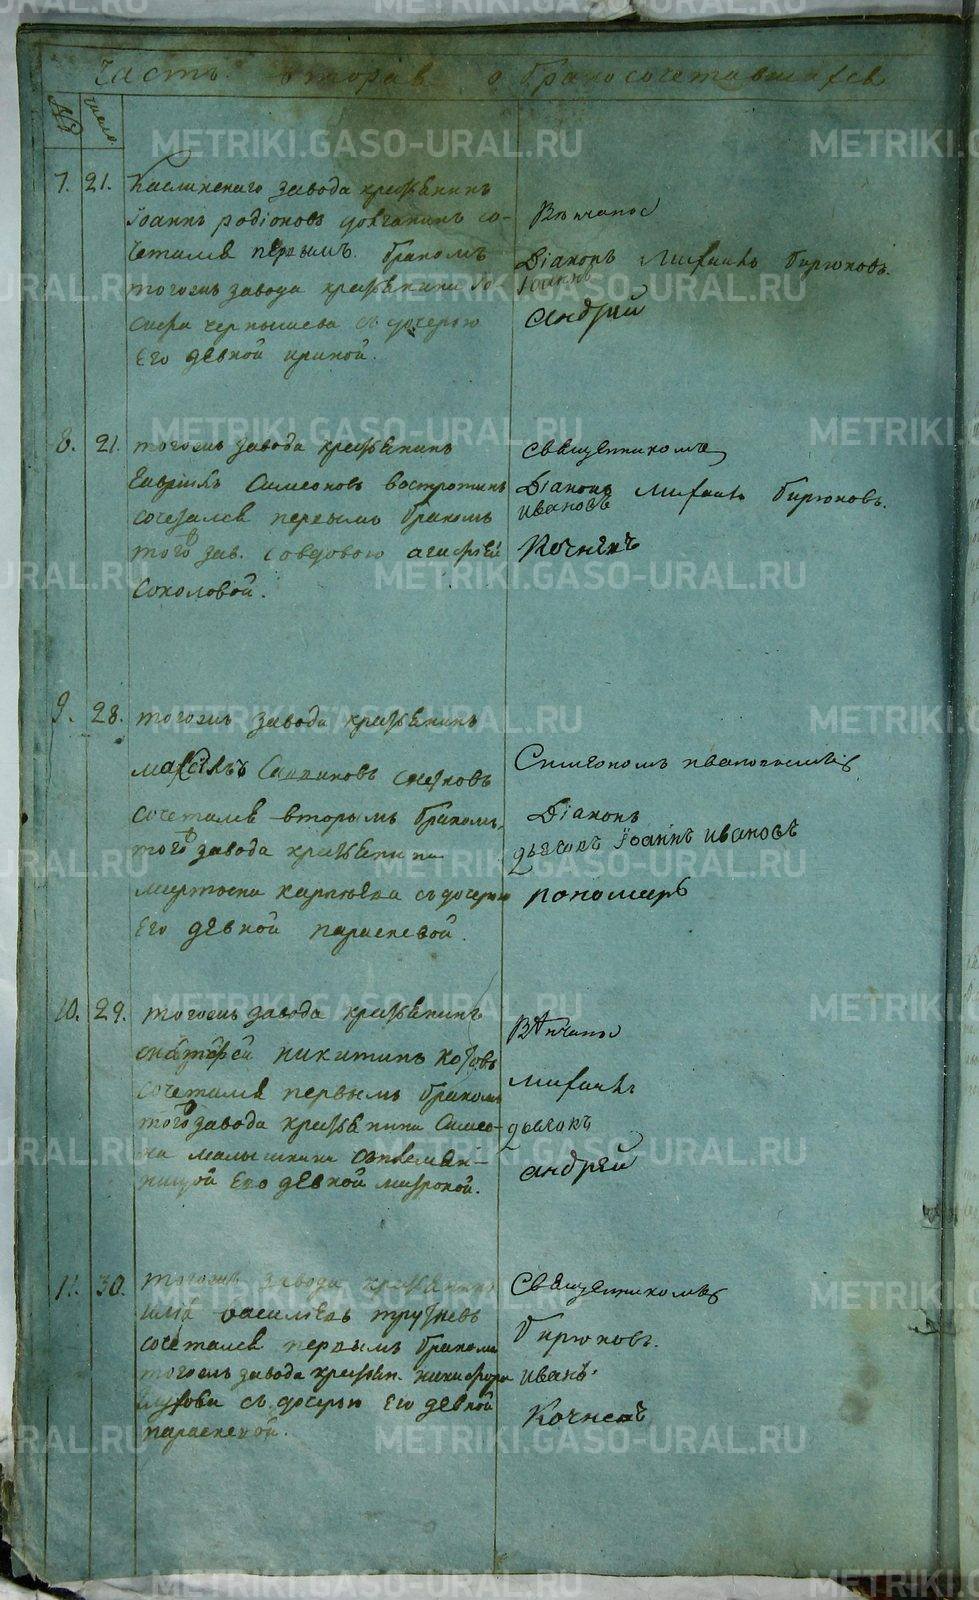 Часть вторая о бракосочетавшихся
№ число
7. 21. Каслинскаго завода крестьянинъ
Іоаннъ родіоновъ со-
четался первымъ бракомъ
тогожъ завода крестьянина Іо-
сифа чернышева съ дочерью
Его девкой ириной.
Венчаног
Діаконъ Михаилъ бирюковъ.
Іоаннъ
андрей
8. 21. тогожъ завода крестьянинъ
Гавріилъ Симеоновъ востротинъ
сочетался первымъ бракомъ
того зав. совдовою агафьей
соколовой.
священникомъ
Діаконъ Михаилъ бирюковъ.
ивановъ
Кочневъ
9. 28. тогожъ завода крестьянинъ
сочетался вторымъ бракомъ,
того завода крестьянина
съ дочерью
Его девкой параскевой.
Симеономъ
Діаконъ
дьячокъ Іоаннъ ивановъ
пономарь
10. 29. тогожъ завода крестьянинъ
никитинъ
сочетался первымъ бракомъ
того завода крестьянина Симео-
на малышкина соплемян-
ницой Его девкой матроной.
Венчаны
михаилъ
дьячокъ
андрей
11. 30. тогожъ завода крестьянинъ
илья васильевъ
сочетался первымъ бракомъ
тогожъ завода крестьян. никифора
глухова съ дочерью Его девкой
параскевой.
священникомъ
бирюковъ.
иванъ.
Кочневъ
METRIKI.GASO-URAL.RU